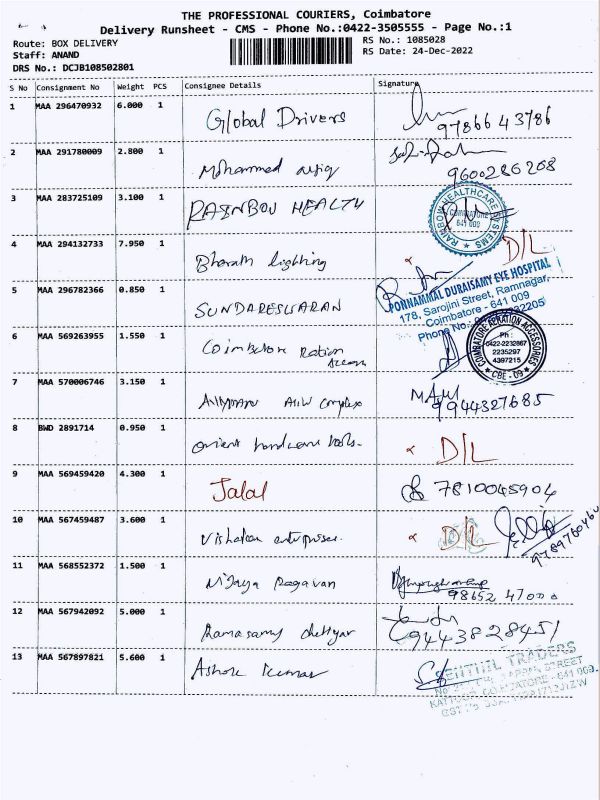 THE PROFESSIONAL COURIERS, Coimbatore
Delivery Runsheet - CMS - Phone No.:0422-3505555 - Page No.:1
Route: BOX DELIVERY
RS No.: 1085028
Staff: ANAND
RS Date: 24-Dec-2022
DRS No.: DCJB108502801
S No Consignment No Weight PCS Consignee Details Signature
1 MAA 296470932 6.000 1 Global Drivers
9786643786
2 MAA 291780009 2.800 1 Mohammed
9600286268
3 MAA 283725109 3.100 1 RAINBOW HEALTH
RAINBOW HEALTHCARE SYSTEMS
COIMBATORE
641 009
4 MAA 294132733 7.950 1 Bharath lighting D/L
5 MAA 296782366 0.850 1 SUNDARESWARAN
PONNAMMAL DURAISAMY EYE HOSPITAL
178, Sarojini Street, Ramnagar,
Coimbatore - 641 009
Phone No.:
6 MAA 569263955 1.550 1 Coimbatore
COIMBATORE AERATION ACCESSORIES
Ph :
0422-2232867
2235297
4397215
CBE - 09
7 MAA 570006746 3.150 1 Complex
9944327685
8 BWD 2891714 0.950 1 orient hardware tools. D/L
9 MAA 569459420 4.300 1 Jalal 7810045904
10 MAA 567459487 3.600 1 enterprises. D/L
11 MAA 568552372 1.500 1 Vijaya Ragavan
98652 47000
12 MAA 567942092 5.000 1 Ramasamy chettiyar
9443828451
13 MAA 567897821 5.600 1 Ashok kumar
SENTHIL TRADERS
STREET
COIMBATORE - 641 009.